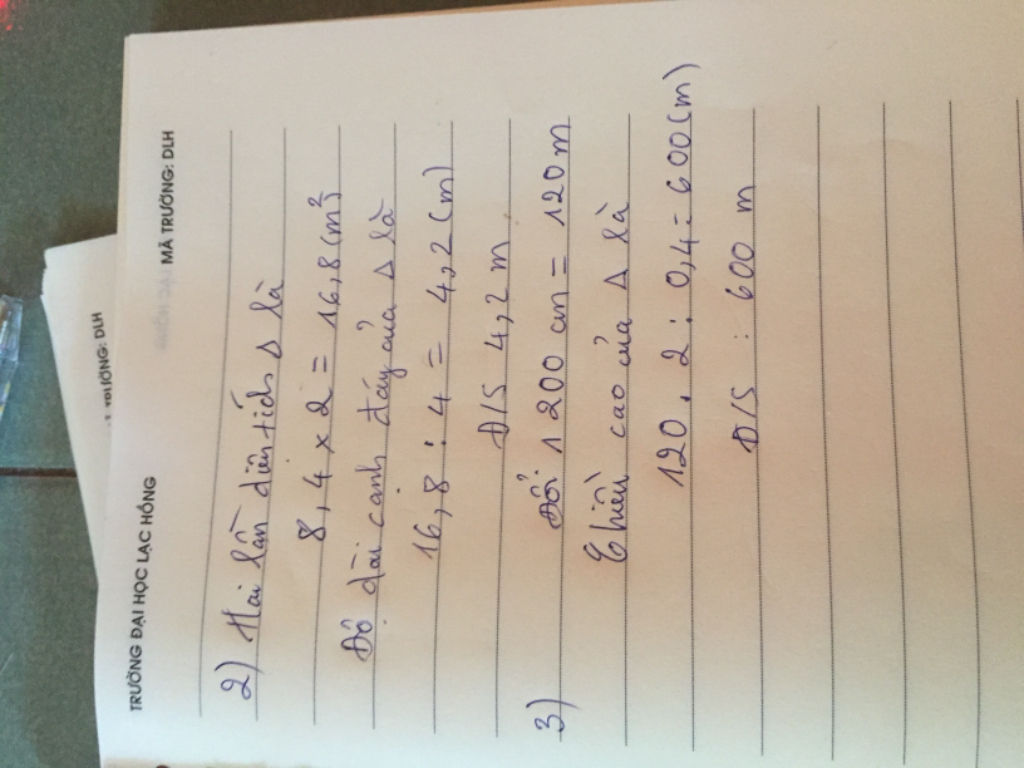 TRƯỜNG: DLH
TRƯỜNG ĐẠI HỌC LẠC HỒNG MÃ TRƯỜNG: DLH
2) Hai lần diện tích Δ là
8,4 x 2 = 16,8 (m²)
Độ dài cạnh đáy của Δ là
16,8 : 4 = 4,2 (m)
Đ/S 4,2 m
3) Đổi 1200 cm = 120 m
Chiều cao của Δ là
120 . 2 : 0,4 = 600 (m)
Đ/S : 600 m